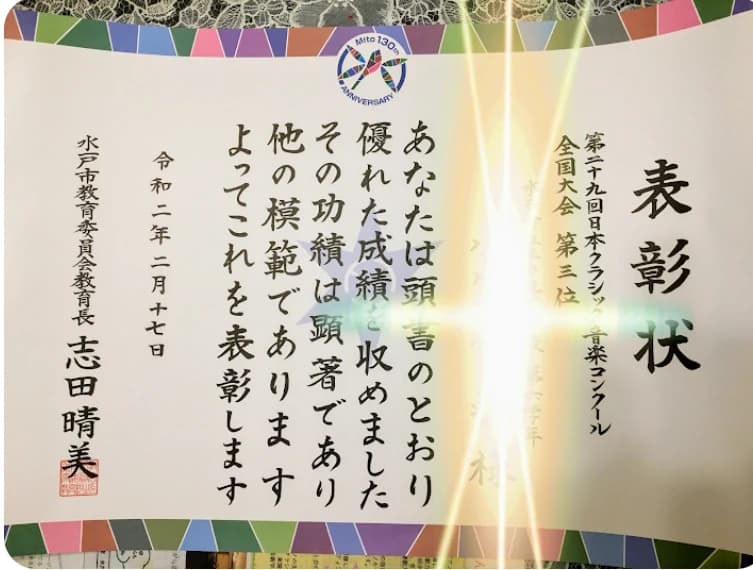 Mito 130th
ANNIVERSARY
表彰状
第二十九回日本クラシック音楽コンクール
全国大会 第三位
様
あなたは頭書のとおり
優れた成績を収めました
その功績は顕著であり
他の模範であります
よってこれを表彰します
令和二年二月十七日
水戸市教育委員会教育長 志田晴美